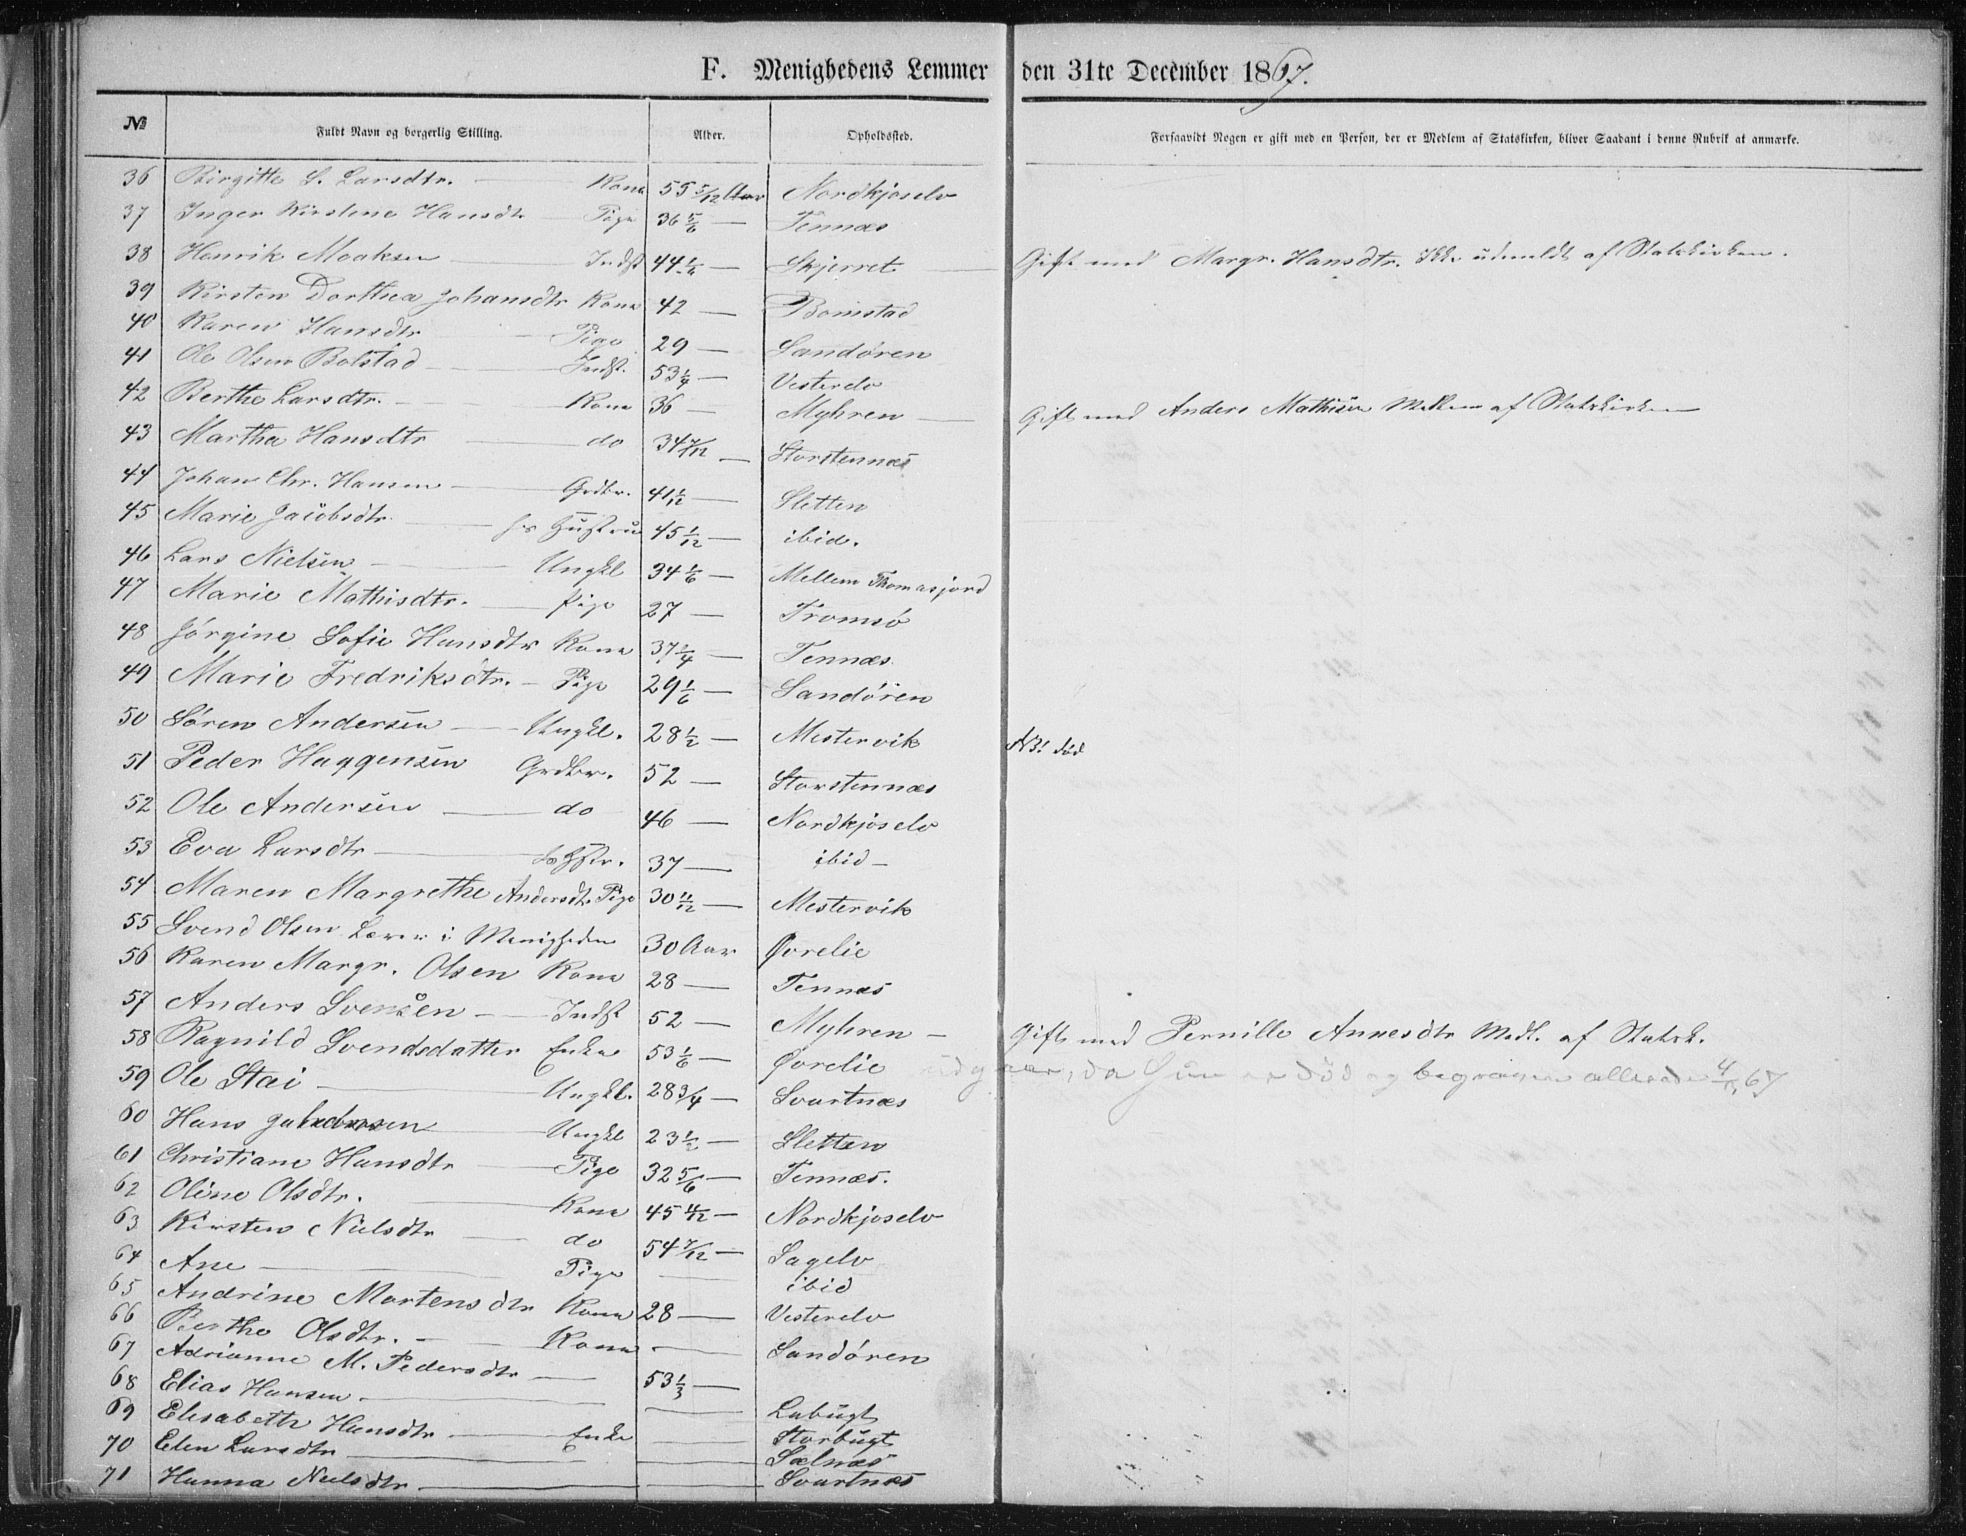 F. Menighedens Lemmer den 31te December 1867.
№ Fuldt Navn og borgerlig Stilling. Alder. Opholdssted. Forsaavidt Nogen er gift med en Person, der er Medlem af Statskirken, bliver Saadant i denne Rubrik at anmærke.
36 Birgitte S. Larsdtr. — Kone 55 5/12 Aar Nordkjoselv
37 Inger Kirstine Hansdtr — Pige 36 5/6 — Tennæs
38 Henrik Moaksen — Indst 44 1/4 — Skjerret — Gift med Margr. Hansdtr. Ikke udmeldt af Statskirken.
39 Kirsten Dorthea Johansdtr Kone 42 — Bomstad
40 Karen Hansdtr — Pige 29 — Sandøren
41 Ole Olsen Bolstad — Indst. 53 1/4 — Vesterelv
42 Berthe Larsdtr. — Kone 36 — Myhren — Gift med Anders Mathisen Medlem af Statskirken
43 Martha Hansdtr — do 34 7/12 — Storstennæs
44 Johan Chr. Hansen — Grdbr. 41 1/12 — Sletten
45 Marie Jacobsdtr — hs Hustru 45 1/12 — ibid.
46 Lars Nielsen — Ungkl 34 1/6 — Mellem Thomasjord
47 Marie Mathisdtr. — Pige 27 — Tromsø
48 Jørgine Sofie Hansdtr Kone 37 1/4 — Tennæs
49 Marie Fredriksdtr. — Pige 29 1/6 — Sandøren
50 Søren Andersen — Ungkl. 28 1/2 — Mestervik NB! død
51 Peder Haggensen Grdbr. 52 — Storstennæs
52 Ole Andersen — do 46 — Nordkjoselv
53 Eva Larsdtr — hs Hstr. 37 — ibid —
54 Maren Margrethe Andersdtr Pige 30 11/12 — Mestervik
55 Svend Olsen Lærer i Menigheden 30 Aar Øvrelie
56 Karen Margr. Olsen Kone 28 — Tennæs
57 Anders Svensen — Indst 52 — Myhren — Gift med Pernille Annesdtr Medl. af Statsk.
58 Ragnild Svendsdatter Enke 53 1/6 — Øvrelie udgaaer, da Hun er død og begraven allerede 67
59 Ole Stai — Ungkl. 28 3/4 — Svartnæs
60 Hans — Ungkl 23 1/2 — Sletten
61 Christiane Hansdtr — Pige 32 5/6 — Tennæs.
62 Oline Olsdtr. — Kone 45 4/12 — Nordkjoselv
63 Kirsten Nielsdtr — do 54 7/12 — Sagelv
64 Ane — Pige — ibid
65 Andrine Mortensdtr Kone 28 — Vesterelv
66 Berthe Olsdtr. — Kone — Sandøren
67 Adrianne M. Pedersdtr — 53 1/3 —
68 Elias Hansen — Labugt
69 Elisabeth Hansdtr — Enke — Storbugt
70 Elen Larsdtr — Sælnæs
71 Hanna Nielsdtr — Svartnæs